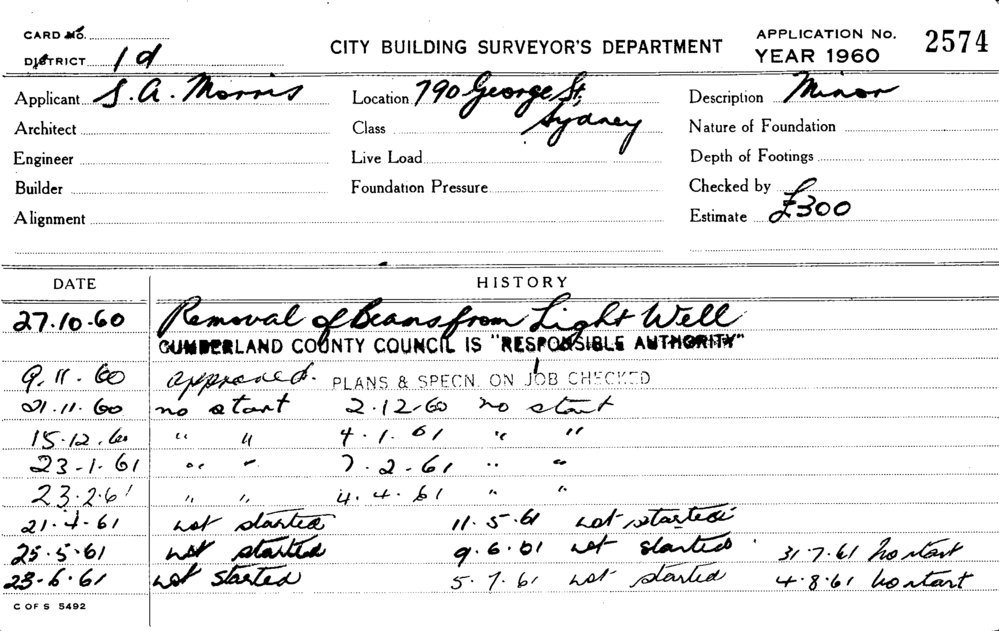 CARD No.
DISTRICT 1d
CITY BUILDING SURVEYOR'S DEPARTMENT
APPLICATION No. 2574
YEAR 1960
Applicant S. A. Morris Location 790 George St, Sydney Description Minor
Architect Class Nature of Foundation
Engineer Live Load Depth of Footings
Builder Foundation Pressure Checked by
Alignment Estimate £300
DATE HISTORY
27.10.60 Removal of Beans from Light Well
CUMBERLAND COUNTY COUNCIL IS "RESPONSIBLE AUTHORITY"
9.11.60 approved. PLANS & SPECN. ON JOB CHECKED
21.11.60 no start 2.12.60 no start
15.12.60 " " 4.1.61 " "
23-1-61 " " 7.2.61 " "
23.2.61 " " 4.4.61 " "
21.4.61 not started 11.5.61 not started
25.5.61 not started 9.6.61 not started 31.7.61 No start
23.6.61 not started 5.7.61 not started 4.8.61 No start
C OF S 5492